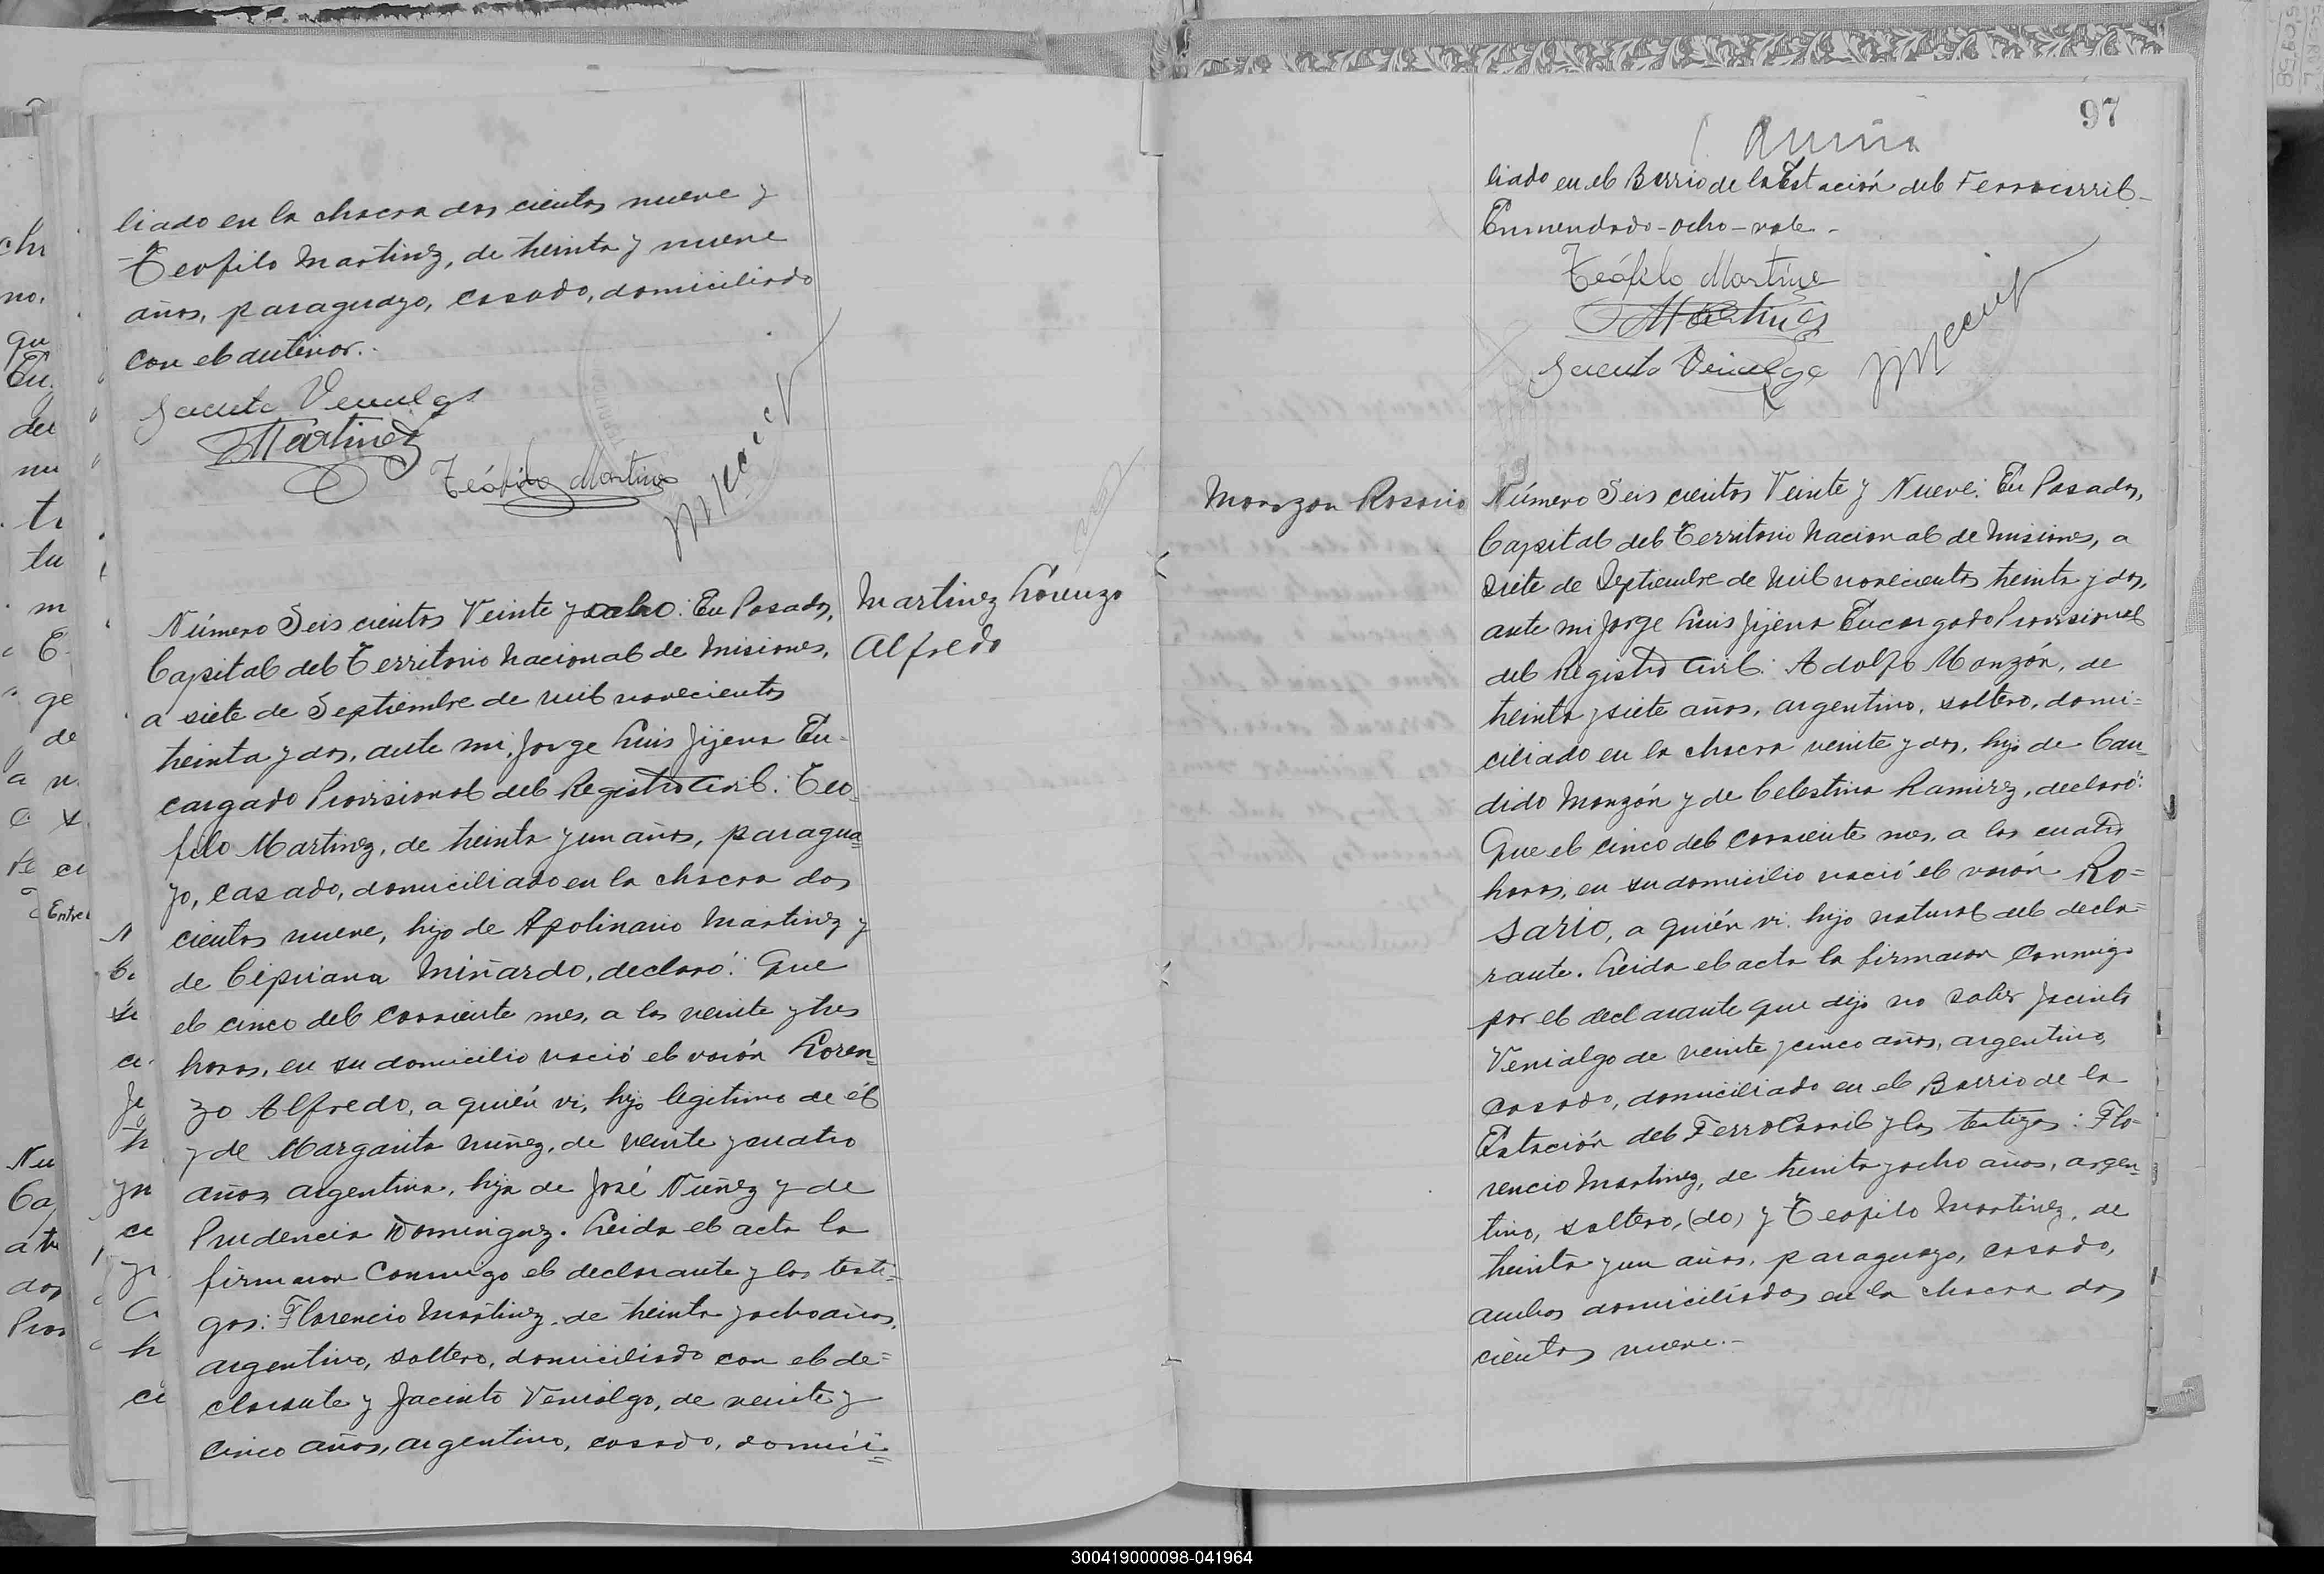 liado en la chacra dos cientos nueve y
Teofilo Martinez, de treinta y nueve
años, paraguayo, casado, domiciliado
con el anterior.-
Jacinto Venialgo
Martinez
Teófilo Martinez
Número Seis cientos Veinte y ocho: En Posadas,
Capital del Territorio Nacional de Misiones,
a siete de Septiembre de mil novecientos
treinta y dos, ante mi, Jorge Luis Jijena En-
cargado Provisional del Registro Civil: Teo-
filo Martinez, de treinta y un años, paragua-
yo, casado, domiciliado en la chacra dos
cientos nueve, hijo de Apolinario Martinez y
de Cipriana Miñardo, declaró: Que
el cinco del corriente mes, a las veinte y tres
horas, en su domicilio nació el varón Loren-
zo Alfredo, a quién vi, hijo legitimo de él
y de Margarita Nuñez, de veinte y cuatro
años, argentina, hija de José Nuñez y de
Prudencia Dominguez. Leida el acta la
firmaron Conmigo el declarante y los testi-
gos: Florencio Martinez, de treinta y ocho años,
argentino, soltero, domiciliado con el de-
clarante y Jacinto Venialgo, de veinte y
cinco años, argentino, casado, domici-
Martinez Lorenzo
Alfredo
97
liado en el Barrio de la Estación del Ferrocarril-
Enmendado-ocho-vale-
Teófilo Martinez
Martinez
Jacinto Venialgo
Monzon Rosario
Número Seis cientos Veinte y Nueve: En Posadas,
Capital del Territorio Nacional de Misiones, a
siete de Septiembre de mil novecientos treinta y dos,
ante mi Jorge Luis Jijena Encargado Provisional
del Registro Civil: Adolfo Monzón, de
treinta y siete años, argentino, soltero, domi-
ciliado en la chacra veinte y dos, hijo de Can-
dido Monzón y de Celestina Ramirez, declaró:
Que el cinco del corriente mes, a las cuatro
horas, en su domicilio nació el varón Ro-
sario, a quién vi, hijo natural del decla-
rante. Leida el acta la firmaron Conmigo
por el declarante que dijo no saber Jacinto
Venialgo de veinte y cinco años, argentino,
casado, domiciliado en el Barrio de la
Estación del FerroCarril y los testigos: Flo-
rencio Martinez, de treinta y ocho años, argen-
tino, soltero, (do) y Teofilo Martinez, de
treinta y un años, paraguayo, casado,
ambos domiciliados en la chacra dos
cientos nueve.-
300419000098-041964